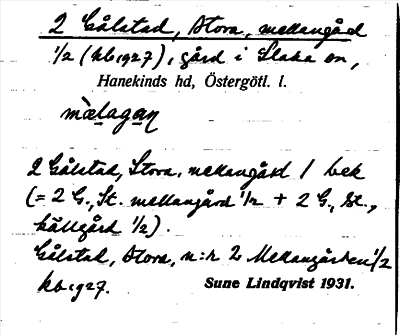 2 Gålstad, Stora, mellangård
1/2 (kb 1927), gård i Slaka sn,
Hanekinds hd, Östergötl. l.
mæ̀lagaṇ
2 Gålstad, Stora, mellangård 1 bek
(= 2 G., St. mellangård 1/2 + 2 G., St.,
källgård 1/2).
Gålstad, Stora, n:r 2 Mellangården 1/2
kb 1927. Sune Lindqvist 1931.